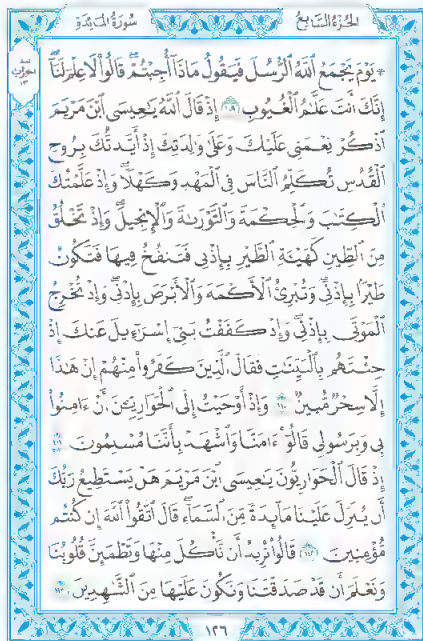 الجُزْءُ السَّابِعُ
سُورَةُ المَائِدَةِ
نصف
الحزب
١٣
۞ يَوْمَ يَجْمَعُ ٱللَّهُ ٱلرُّسُلَ فَيَقُولُ مَاذَآ أُجِبْتُمْ ۖ قَالُوا۟ لَا عِلْمَ لَنَآ ۖ
إِنَّكَ أَنتَ عَلَّـٰمُ ٱلْغُيُوبِ ١٠٩ إِذْ قَالَ ٱللَّهُ يَـٰعِيسَى ٱبْنَ مَرْيَمَ
ٱذْكُرْ نِعْمَتِى عَلَيْكَ وَعَلَىٰ وَٰلِدَتِكَ إِذْ أَيَّدتُّكَ بِرُوحِ
ٱلْقُدُسِ تُكَلِّمُ ٱلنَّاسَ فِى ٱلْمَهْدِ وَكَهْلًا ۖ وَإِذْ عَلَّمْتُكَ
ٱلْكِتَـٰبَ وَٱلْحِكْمَةَ وَٱلتَّوْرَىٰةَ وَٱلْإِنجِيلَ ۖ وَإِذْ تَخْلُقُ
مِنَ ٱلطِّينِ كَهَيْـَٔةِ ٱلطَّيْرِ بِإِذْنِى فَتَنفُخُ فِيهَا فَتَكُونُ
طَيْرًۢا بِإِذْنِى ۖ وَتُبْرِئُ ٱلْأَكْمَهَ وَٱلْأَبْرَصَ بِإِذْنِى ۖ وَإِذْ تُخْرِجُ
ٱلْمَوْتَىٰ بِإِذْنِى ۖ وَإِذْ كَفَفْتُ بَنِىٓ إِسْرَٰٓءِيلَ عَنكَ إِذْ
جِئْتَهُم بِٱلْبَيِّنَـٰتِ فَقَالَ ٱلَّذِينَ كَفَرُوا۟ مِنْهُمْ إِنْ هَـٰذَآ
إِلَّا سِحْرٌ مُّبِينٌ ١١٠ وَإِذْ أَوْحَيْتُ إِلَى ٱلْحَوَارِيِّـۧنَ أَنْ ءَامِنُوا۟
بِى وَبِرَسُولِى قَالُوٓا۟ ءَامَنَّا وَٱشْهَدْ بِأَنَّنَا مُسْلِمُونَ ١١١
إِذْ قَالَ ٱلْحَوَارِيُّونَ يَـٰعِيسَى ٱبْنَ مَرْيَمَ هَلْ يَسْتَطِيعُ رَبُّكَ
أَن يُنَزِّلَ عَلَيْنَا مَآئِدَةً مِّنَ ٱلسَّمَآءِ ۖ قَالَ ٱتَّقُوا۟ ٱللَّهَ إِن كُنتُم
مُّؤْمِنِينَ ١١٢ قَالُوا۟ نُرِيدُ أَن نَّأْكُلَ مِنْهَا وَتَطْمَئِنَّ قُلُوبُنَا
وَنَعْلَمَ أَن قَدْ صَدَقْتَنَا وَنَكُونَ عَلَيْهَا مِنَ ٱلشَّـٰهِدِينَ ١١٣
١٢٦